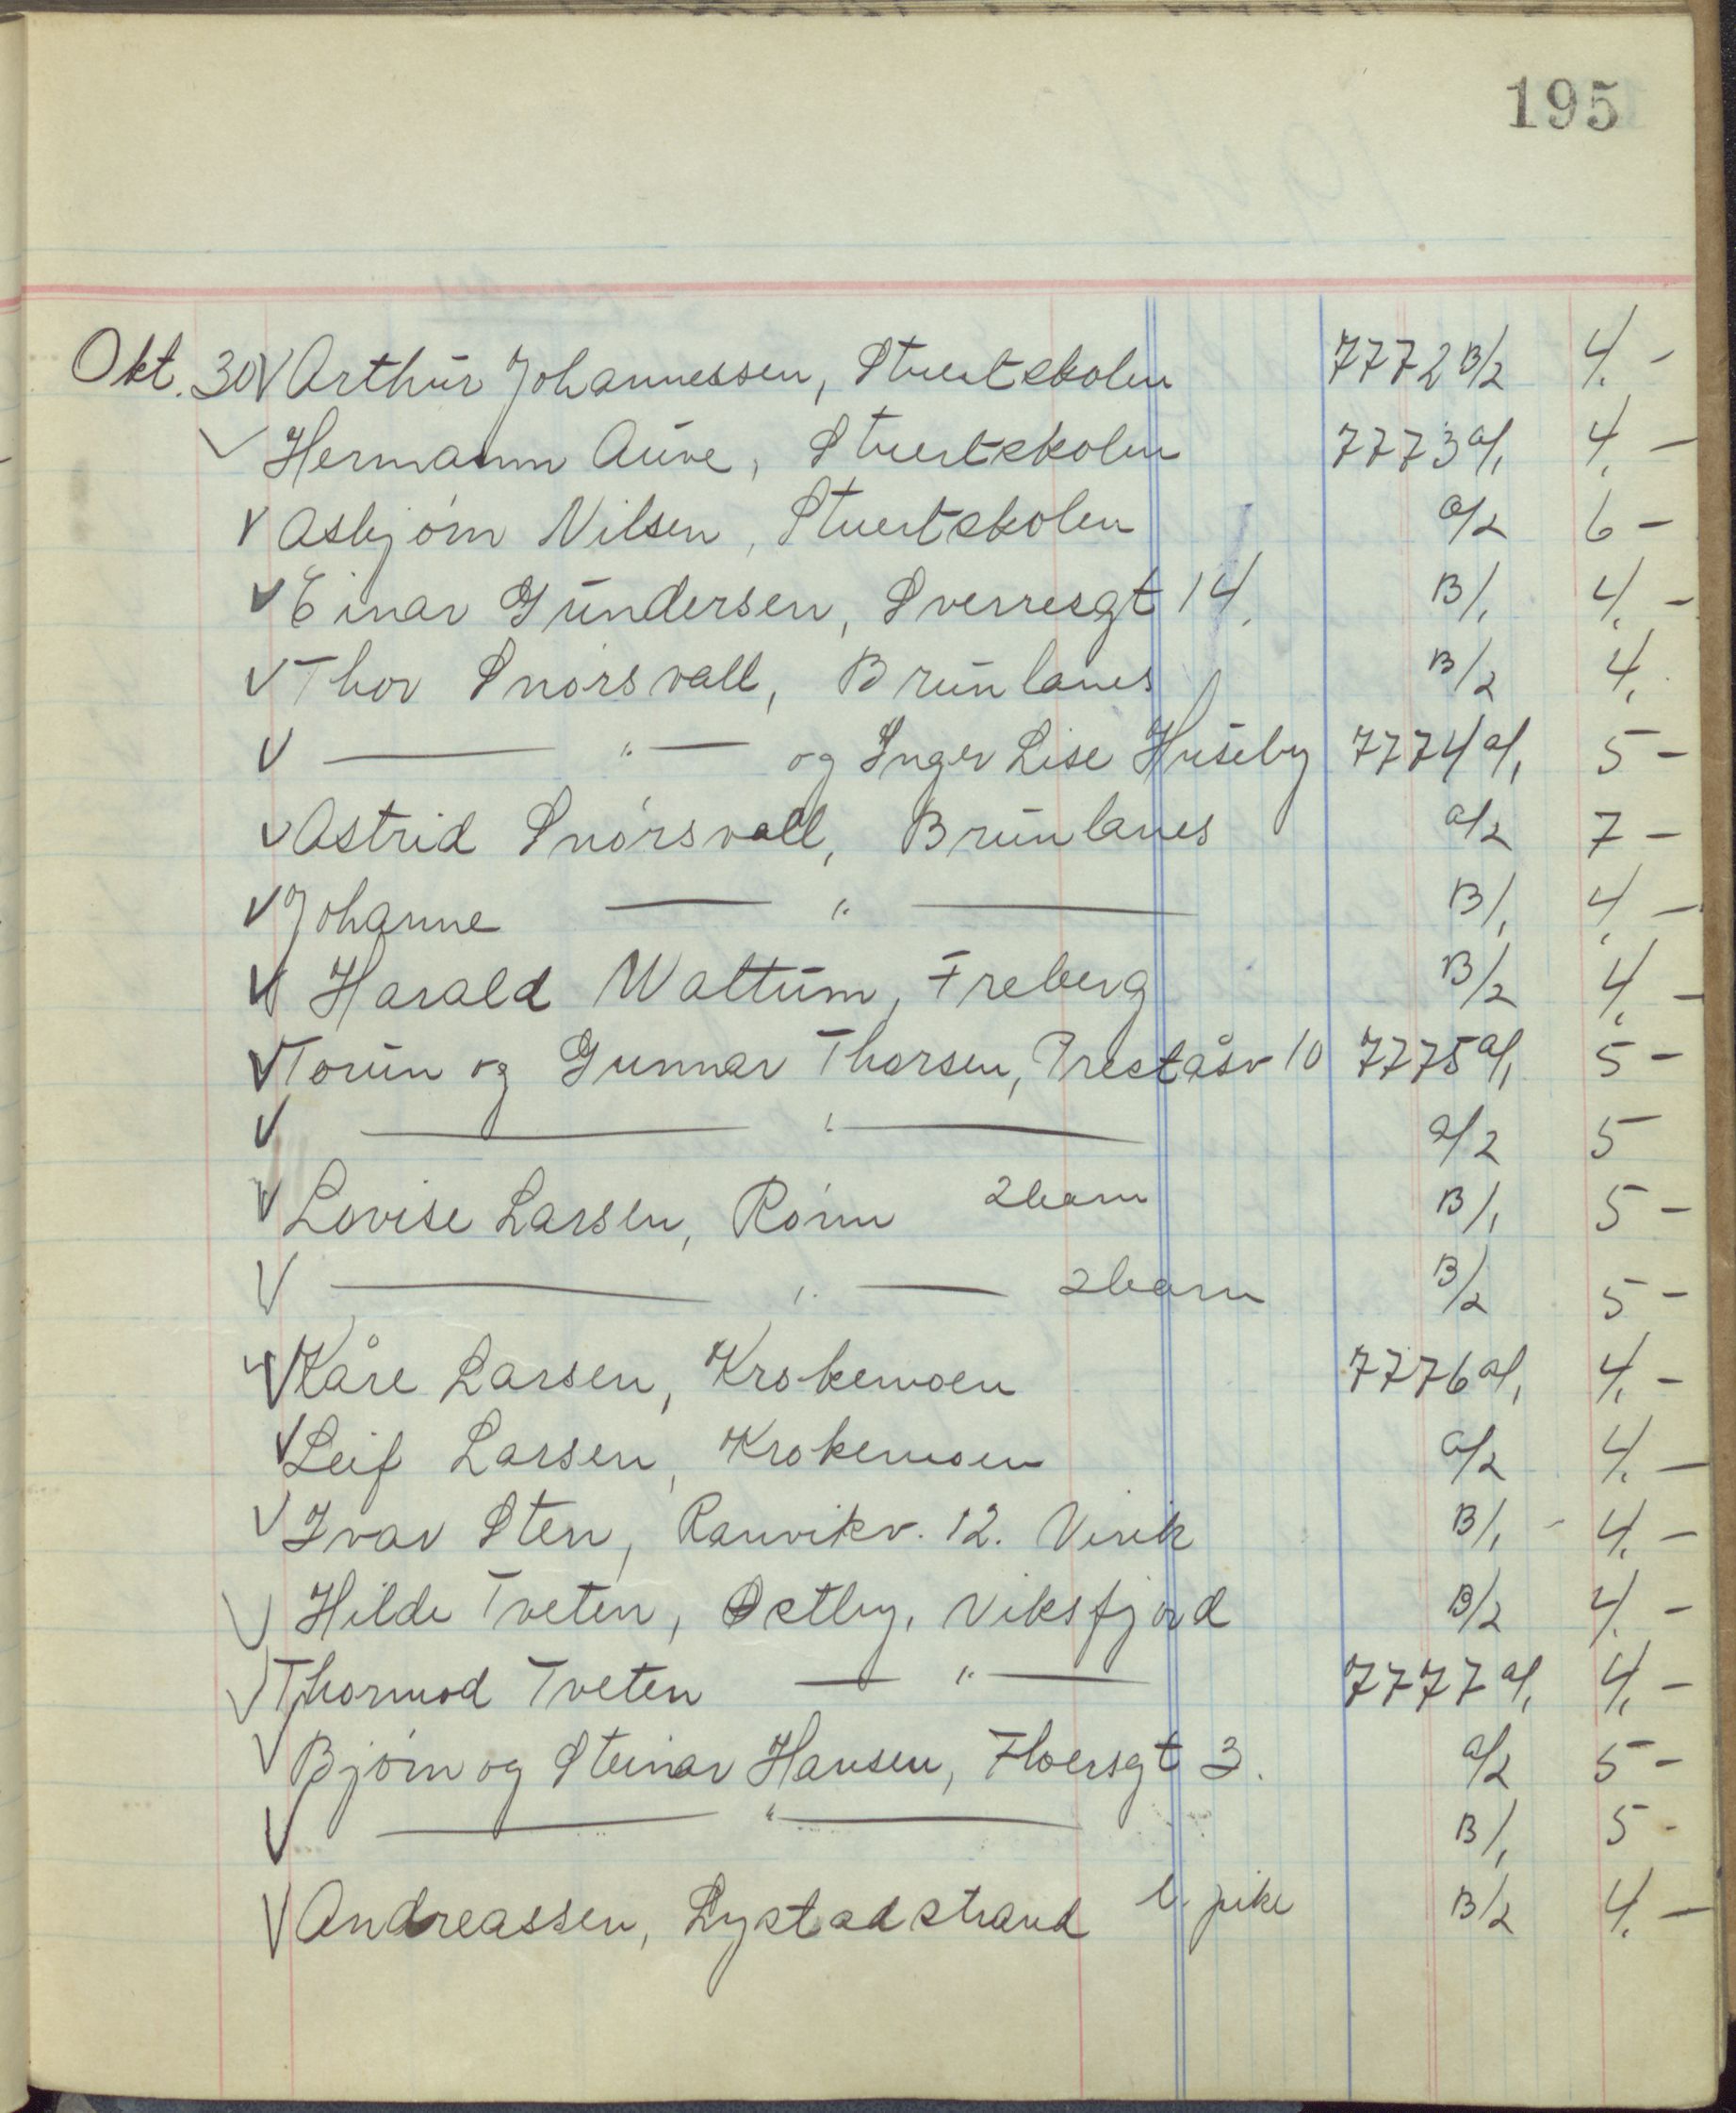 195
Okt. 30 V Arthur Johannessen, Stuertskolen 7772 B/2 4.-
V Hermann Auve, Stuertskolen 7773 a/1 4.-
V Asbjørn Nilsen, Stuertskolen a/2 6-
V Einar Gundersen, Sverresgt 14. B/1 4.-
V Thor Snørsvall, Brunlanes B/2 4.
V — " — og Inger Lise Huseby 7774 a/1 5-
V Astrid Snørsvall, Brunlanes a/2 7-
V Johanne — " — B/1 4.-
V Harald Wattum, Freberg B/2 4.-
V Torun og Gunnar Thorsen, Preståsv 10 7775 a/1 5-
V — " — a/2 5
V Lovise Larsen, Rønn 2 barn B/1 5-
V — " — 2 barn B/2 5-
V Kåre Larsen, Krokemoen 7776 a/1 4.-
V Leif Larsen, Krokemoen a/2 4.-
V Ivar Sten, Ranvikv. 12. Virik B/1 - 4.-
V Hilde Tveten, Østby, Viksfjord B/2 4.-
V Thormod Tveten — " — 7777 a/1 4.-
V Bjørn og Steinar Hansen, Floersgt 3. a/2 5-
V — " — B/1 5-
V Andreassen, Lystadstrand l. pike B/2 4.-